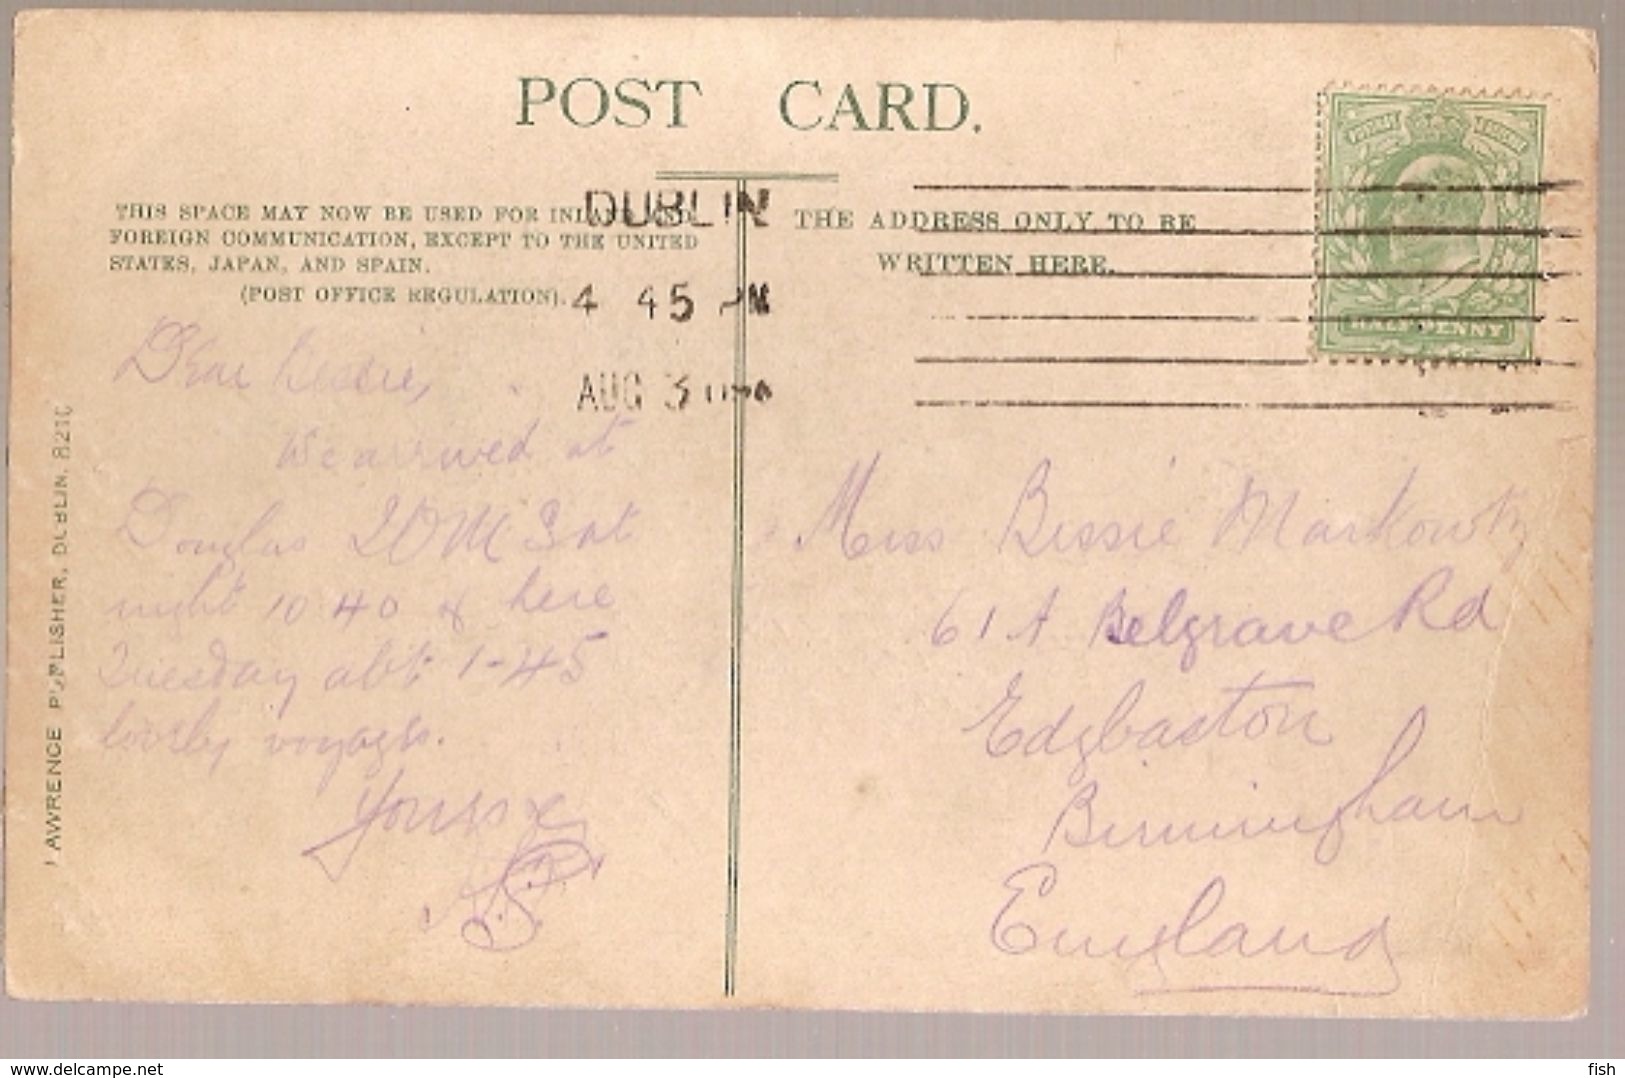 POST CARD.
THIS SPACE MAY NOW BE USED FOR INLAND AND
FOREIGN COMMUNICATION, EXCEPT TO THE UNITED
STATES, JAPAN, AND SPAIN.
(POST OFFICE REGULATION).
THE ADDRESS ONLY TO BE
WRITTEN HERE.
DUBLIN
4 45 PM
AUG 3
HALFPENNY
Dear Bessie,
We arrived at
Douglas IOM Sat
night 10.40 & here
Tuesday abt 1-45
lovely voyages.
Yours
Miss Bessie Markowitz
61 A Belgrave Rd
Edgbaston
Birmingham
England
LAWRENCE PUBLISHER, DUBLIN. 8210
delcampe.net
fish